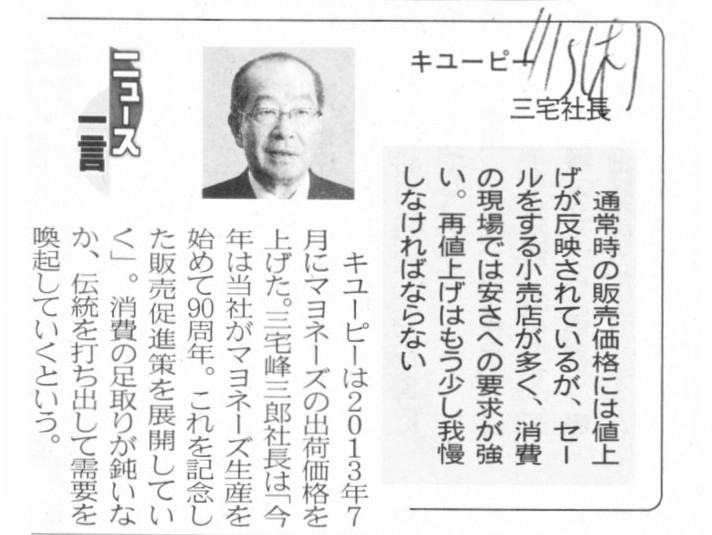 キユーピー
三宅社長
通常時の販売価格には値上
げが反映されているが、セー
ルをする小売店が多く、消費
の現場では安さへの要求が強
い。再値上げはもう少し我慢
しなければならない
ニュース
一言
キユーピーは2013年7
月にマヨネーズの出荷価格を
上げた。三宅峰三郎社長は「今
年は当社がマヨネーズ生産を
始めて90周年。これを記念し
た販売促進策を展開してい
く」。消費の足取りが鈍いな
か、伝統を打ち出して需要を
喚起していくという。